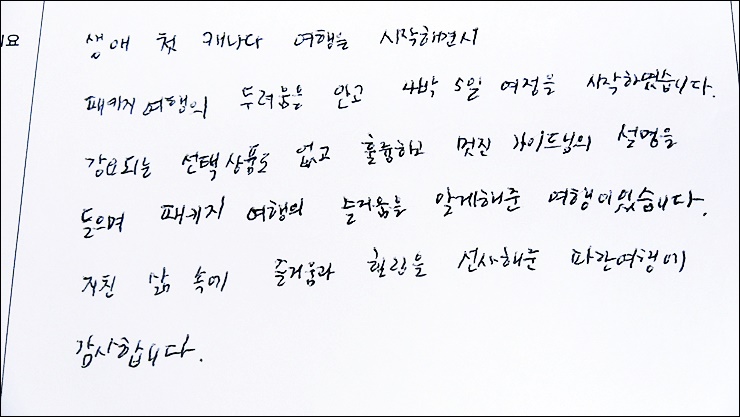 생애 첫 캐나다 여행을 시작하면서
패키지여행의 두려움을 안고 4박 5일 여정을 시작하였습니다.
강요되는 선택상품도 없고 훌륭하고 멋진 가이드님의 설명을
들으며 패키지 여행의 즐거움을 알게해준 여행이었습니다.
지친 삶 속에 즐거움과 힐링을 선사해준 파란여행에
감사합니다.